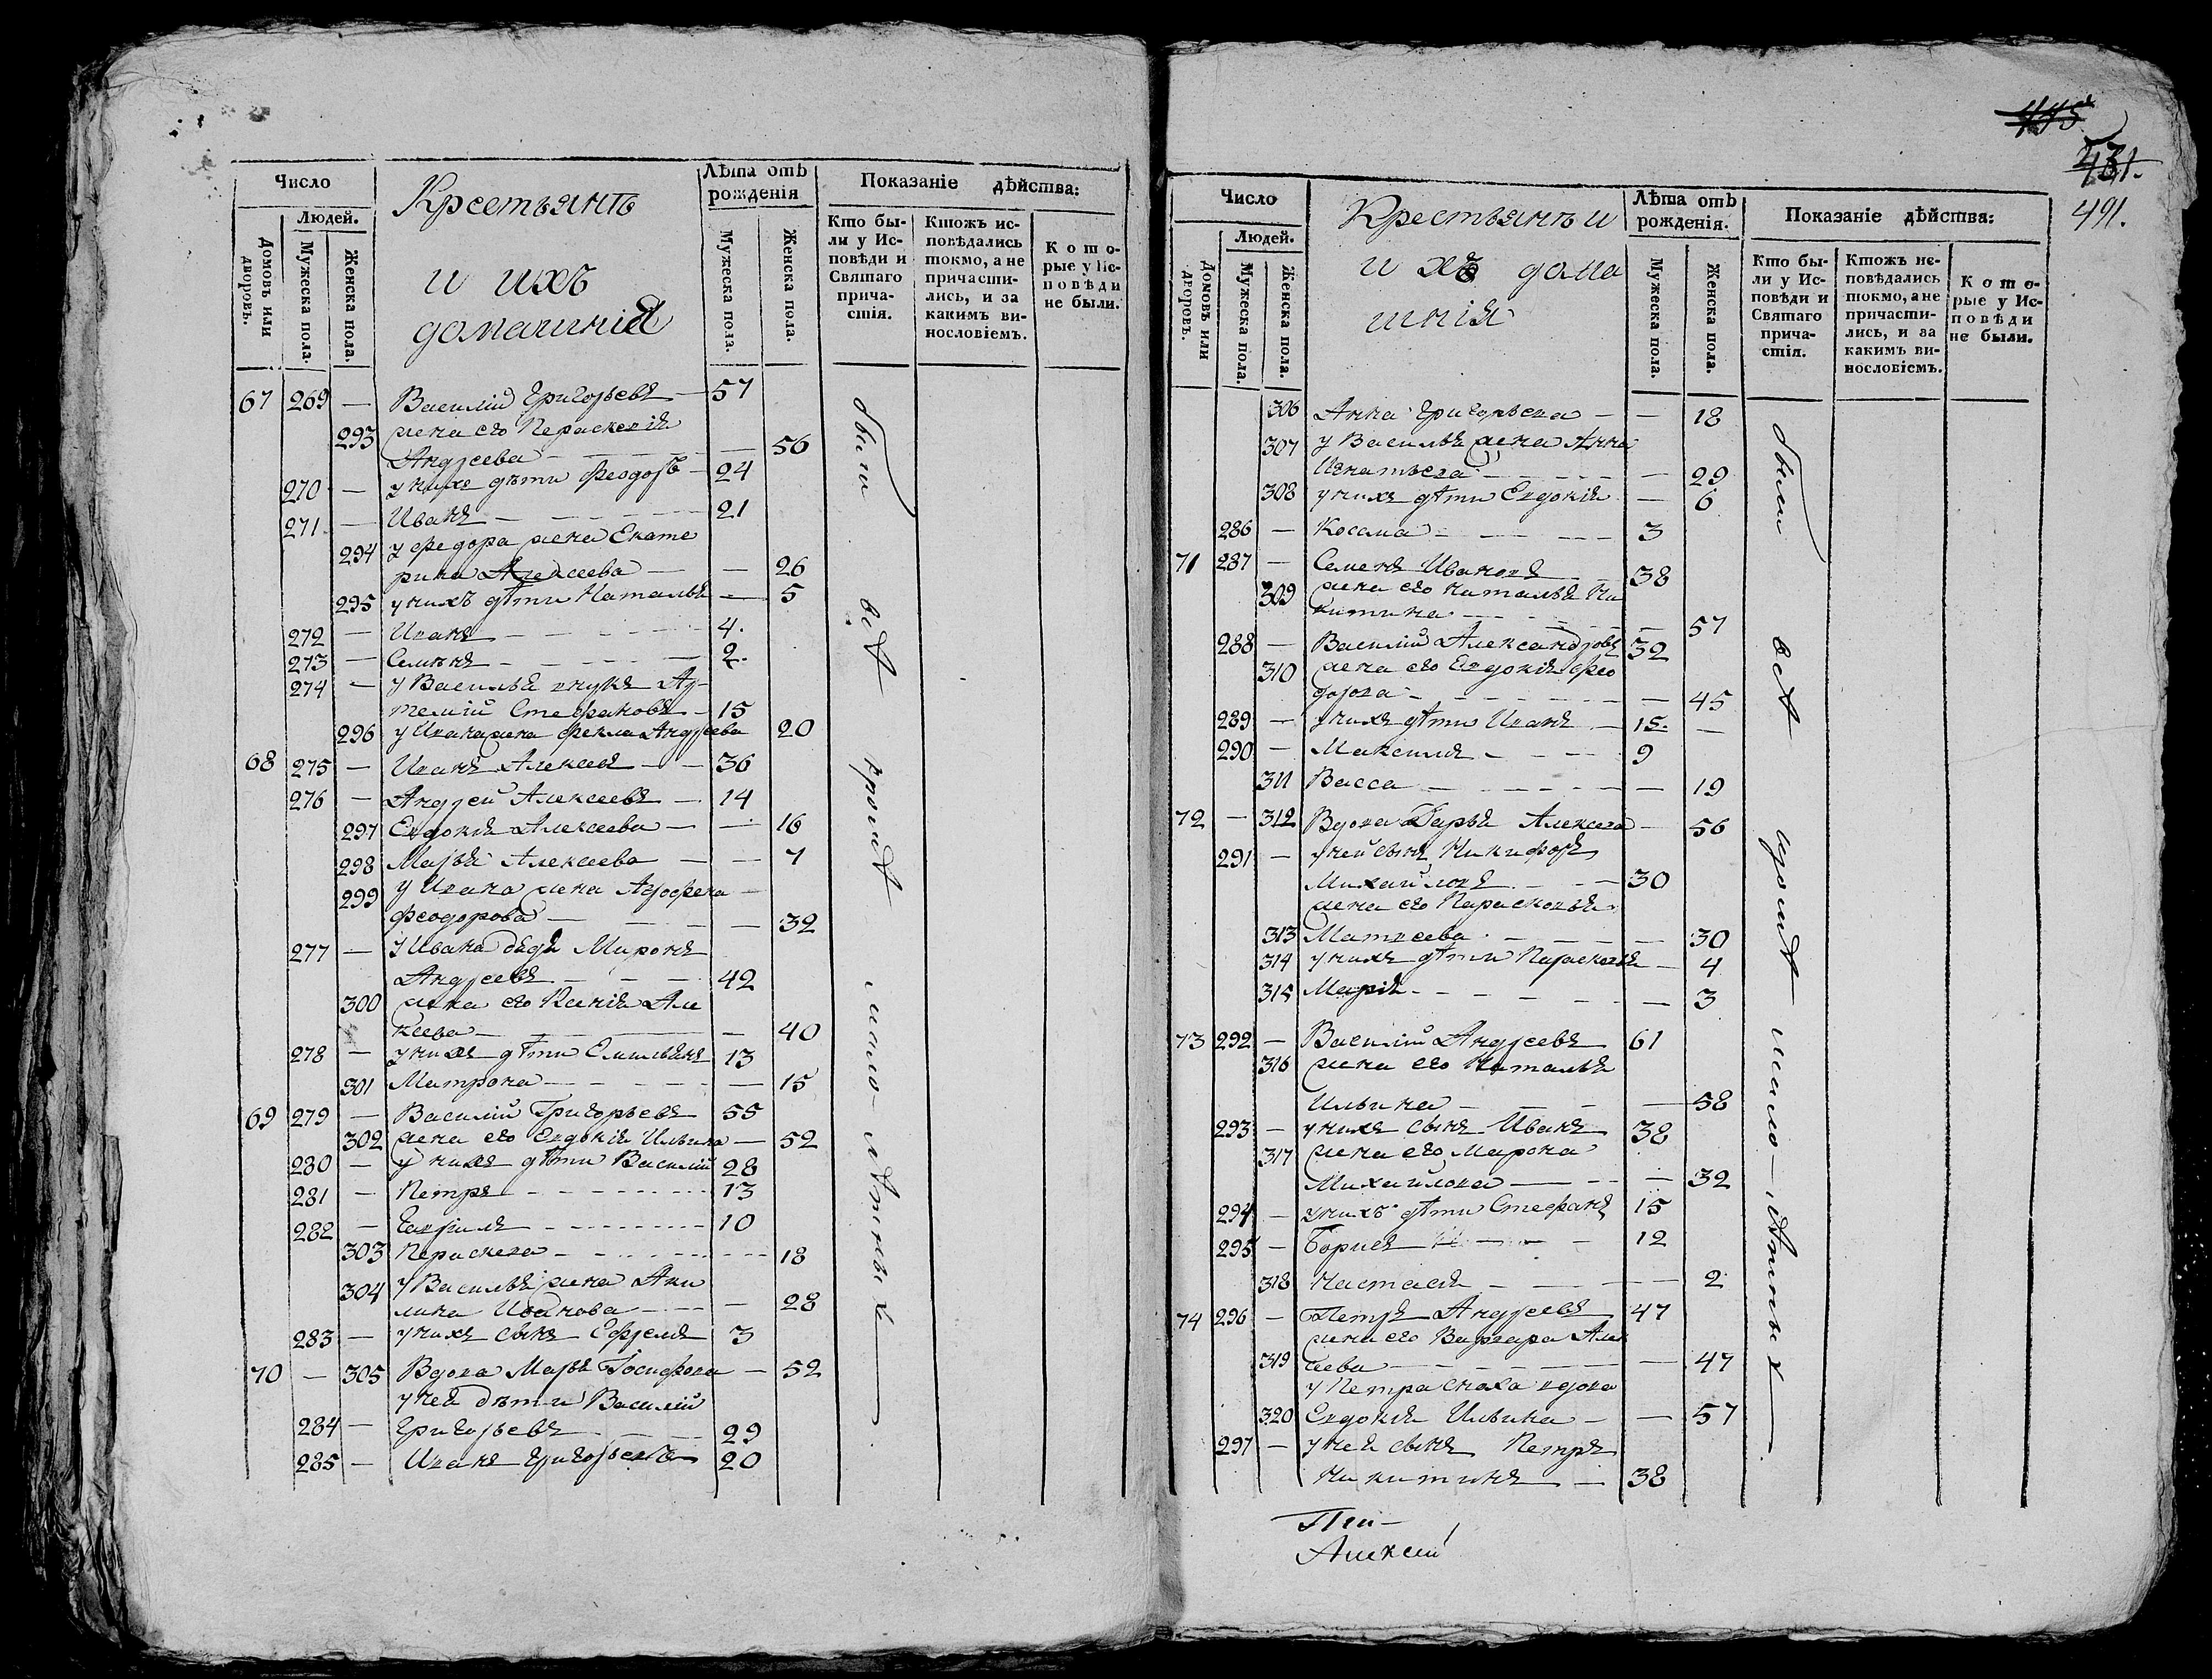 Число
Крестьянъ
Лѣта отъ рожденія
Показаніе дѣйства:
Людей.
Домовъ или дворовъ.
Мужеска пола.
Женска пола.
и ихъ
домашнія
Мужеска пола.
Женска пола.
Кто были у Исповѣди и Святаго причастія.
Ктожъ исповѣдались токмо, а не причастились, и за какимъ винословіемъ.
Которые у Исповѣди не были.
67 269 — Василій Григорьевъ — 57
293 жена его Параскевія
Андреева — — 56
270 — у нихъ дѣти Феодоръ — 24
271 — Иванъ — 21
294 у Федора жена Екате
рина Алексеева — — 26
295 у нихъ дѣти Наталья — 5
272 — Иванъ — 4.
273 — Семенъ — 2.
274 — у Василья внукъ Ар-
темій Стефановъ — 15
296 у Ивана жена Фекла Андреева 20
68 275 — Иванъ Алексеевъ — 36
276 — Андрей Алексеевъ — 14
297 Евдокія Алексеева — — 16
298 Марья Алексеева — — 7
299 у Ивана жена Агрофена —
Феодорова — — 32
277 — у Ивана дядя Миронъ
Андреевъ — 42
300 жена его Ксенія Але
ксеева — — 40
278 — у нихъ дѣти Емельянъ 13
301 Матрона — — 15
69 279 — Василій Григорьевъ 55
302 жена его Евдокія Ильина — 52
280 — у нихъ дѣти Василій 28
281 — Петръ — 13
282 — Гаврилъ — 10
303 Параскева — 18
304 у Василья жена Аку
лина Иванова — — 28
283 — у нихъ сынъ Ефремъ 3
70 — 305 Вдова Марья Іосифова — 52
у ней дѣти Василій
284 — Григорьевъ — 29
285 — Иванъ Григорьевъ 20
были всѣ кромѣ мало-лѣтныхъ
445
431.
491.
Число
Крестьянъ и
Лѣта отъ рожденія.
Показаніе дѣйства:
Людей.
Домовъ или дворовъ.
Мужеска пола.
Женска пола.
ихъ дома
шнія
Мужеска пола.
Женска пола.
Кто были у Исповѣди и Святаго причастія.
Ктожъ исповѣдались токмо, а не причастились, и за какимъ винословіемъ.
Которые у Исповѣди не были.
306 Анна Григорьева — — 18
307 у Василья жена Анна
Игнатьева — — 29
308 у нихъ дѣти Евдокія — 6
286 — Косма — 3
71 287 — Семенъ Ивановъ — 38
309 жена его Наталья Ни
китина — — 57
288 — Василій Александровъ 32
310 жена его Евдокія Фео
дорова — — 45
289 — у нихъ дѣти Иванъ — 15 —
290 — Максимъ — 9
311 Васса — — 19
72 — 312 Вдова Дарья Алексеева — 56
291 — у ней сынъ Никифоръ
Михайловъ — 30
жена его Параскевья
313 Матвеева — — 30
314 у нихъ дѣти Параскевья — 4
315 Марія — — 3
73 292 — Василій Андреевъ 61
316 жена его Наталья
Ильина — — 58
293 — у нихъ сынъ Иванъ 38
317 жена его Марона
Михайлова — — 32
294 — у нихъ дѣти Стефанъ 15
295 — Борисъ — 12
318 Настасья — — 2
74 296 — Петръ Андреевъ 47
жена его Варвара Алек
319 сеева — — 47
у Петра сноха вдова
320 Евдокія Ильина — — 57
297 — у ней сынъ Петръ
Никитинъ — 38
были всѣ кромѣ мало-лѣтныхъ
Алексей